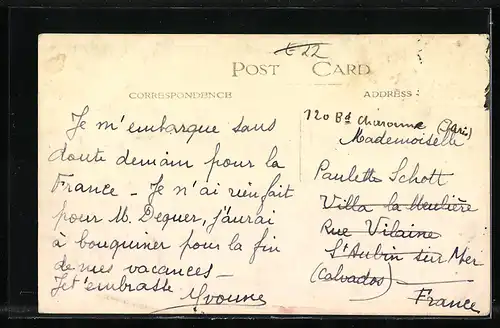 E 22
POST CARD
CORRESPONDENCE
ADDRESS
Je m'embarque sans
doute demain pour la
France - Je n'ai rien fait
pour M. Dequer, j'aurai
à bouquiner pour la fin
de mes vacances -
Je t'embrasse Yvonne
120 Bd Charonne (Paris)
Mademoiselle
Paulette Schott
Villa la Meulière
Rue Vilaine
St Aubin sur Mer
(Calvados)
France